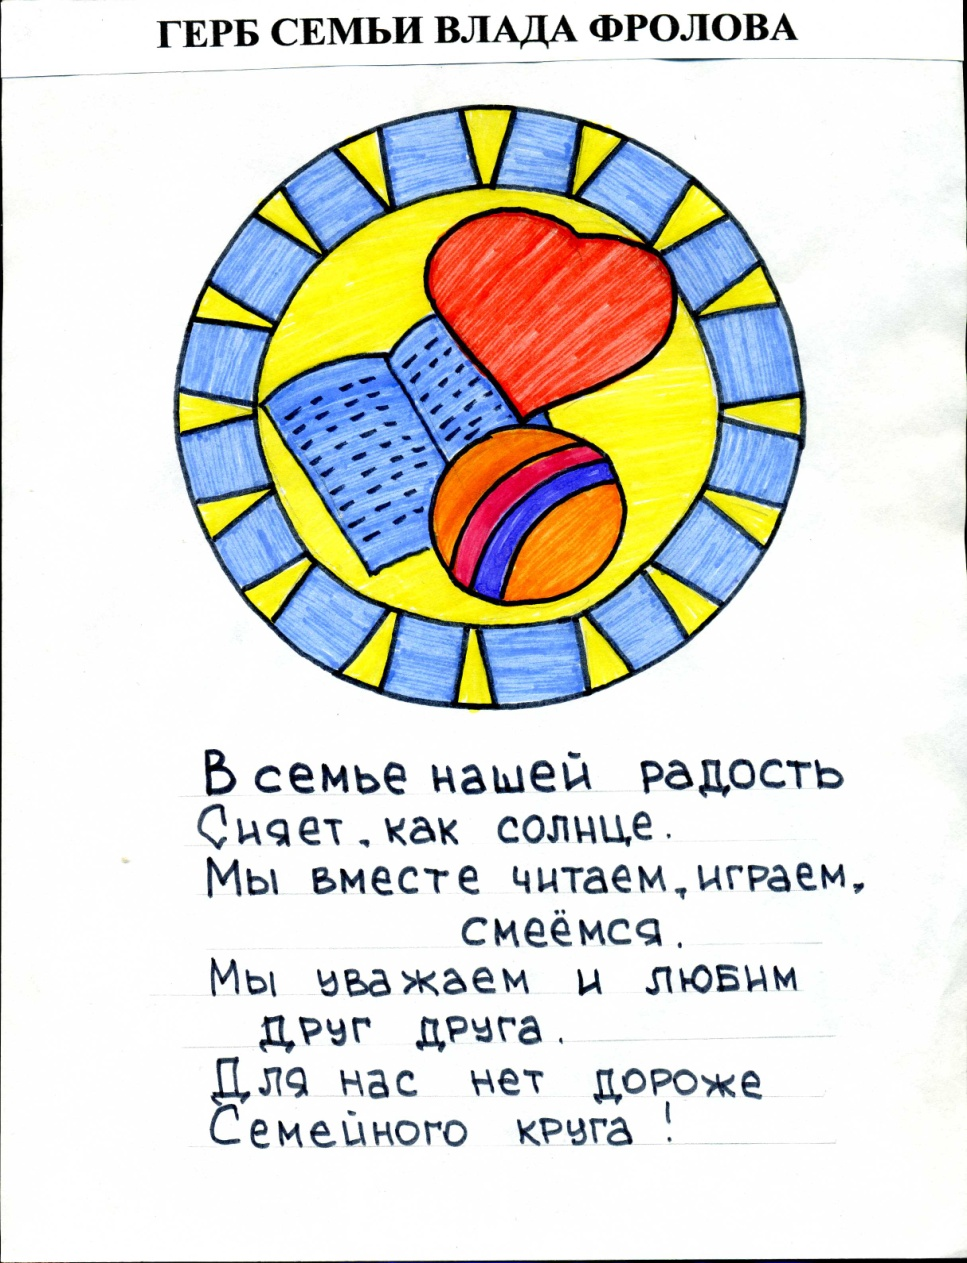 ГЕРБ СЕМЬИ ВЛАДА ФРОЛОВА
В семье нашей радость
Сияет, как солнце.
Мы вместе читаем, играем,
смеёмся.
Мы уважаем и любим
друг друга.
Для нас нет дороже
Семейного круга!